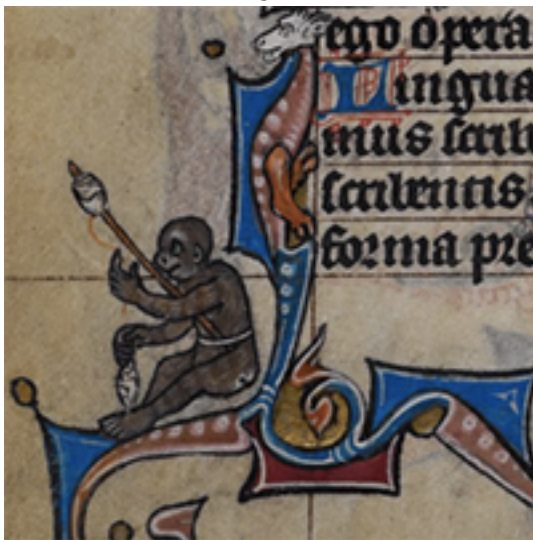 ego opera
Lingua
mus scrib
scribentis
forma pre